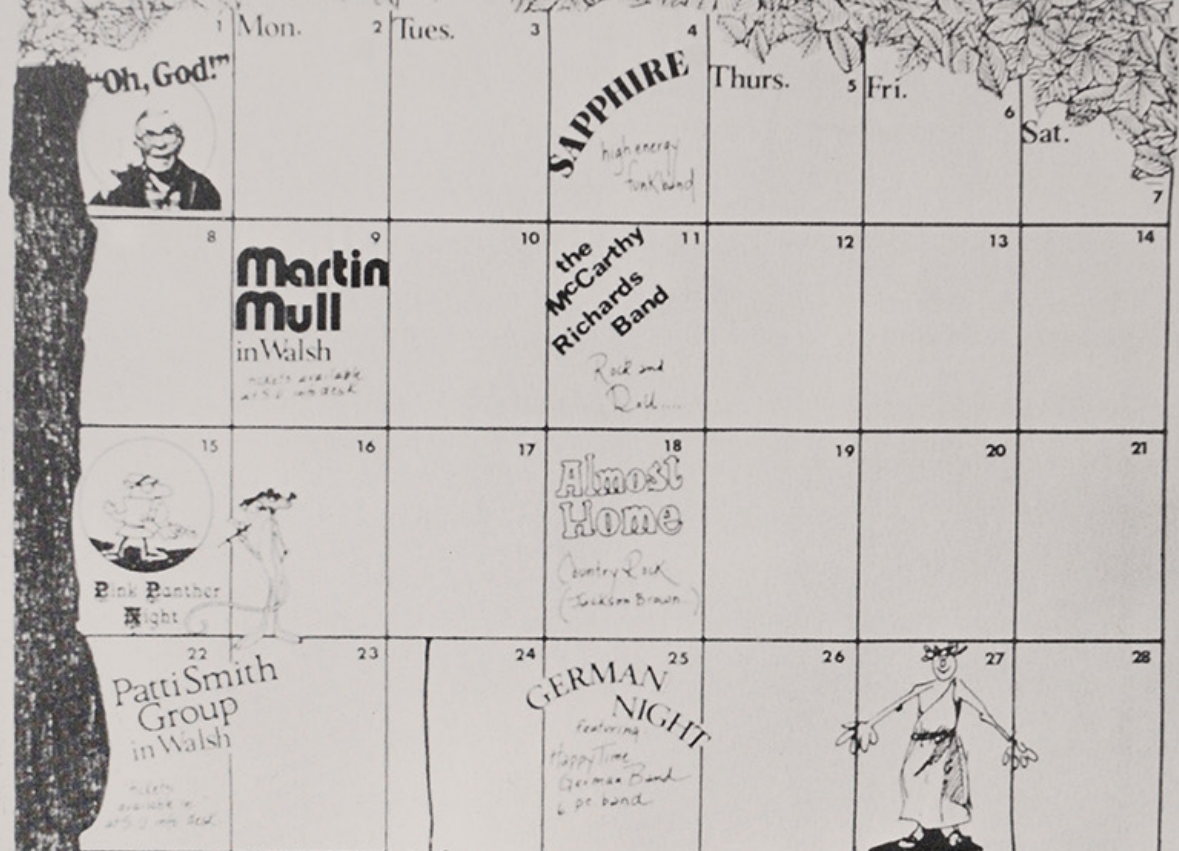 1 Mon. 2 Tues. 3 4
"Oh, God!"
SAPPHIRE
high energy
funk band
Thurs. 5 Fri. 6
Sat. 7
8 9 10 11 12 13 14
Martin
Mull
in Walsh
tickets available
at S.U. info desk
the
McCarthy
Richards
Band
Rock and
Roll....
15 16 17 18 19 20 21
Pink Panther
Night
Almost
Home
Country Rock
(Jackson Brown)
22 23 24 25 26 27 28
Patti Smith
Group
in Walsh
tickets
available
at S.U. info desk
GERMAN
NIGHT
featuring
Happy Time
German Band
6 pc band